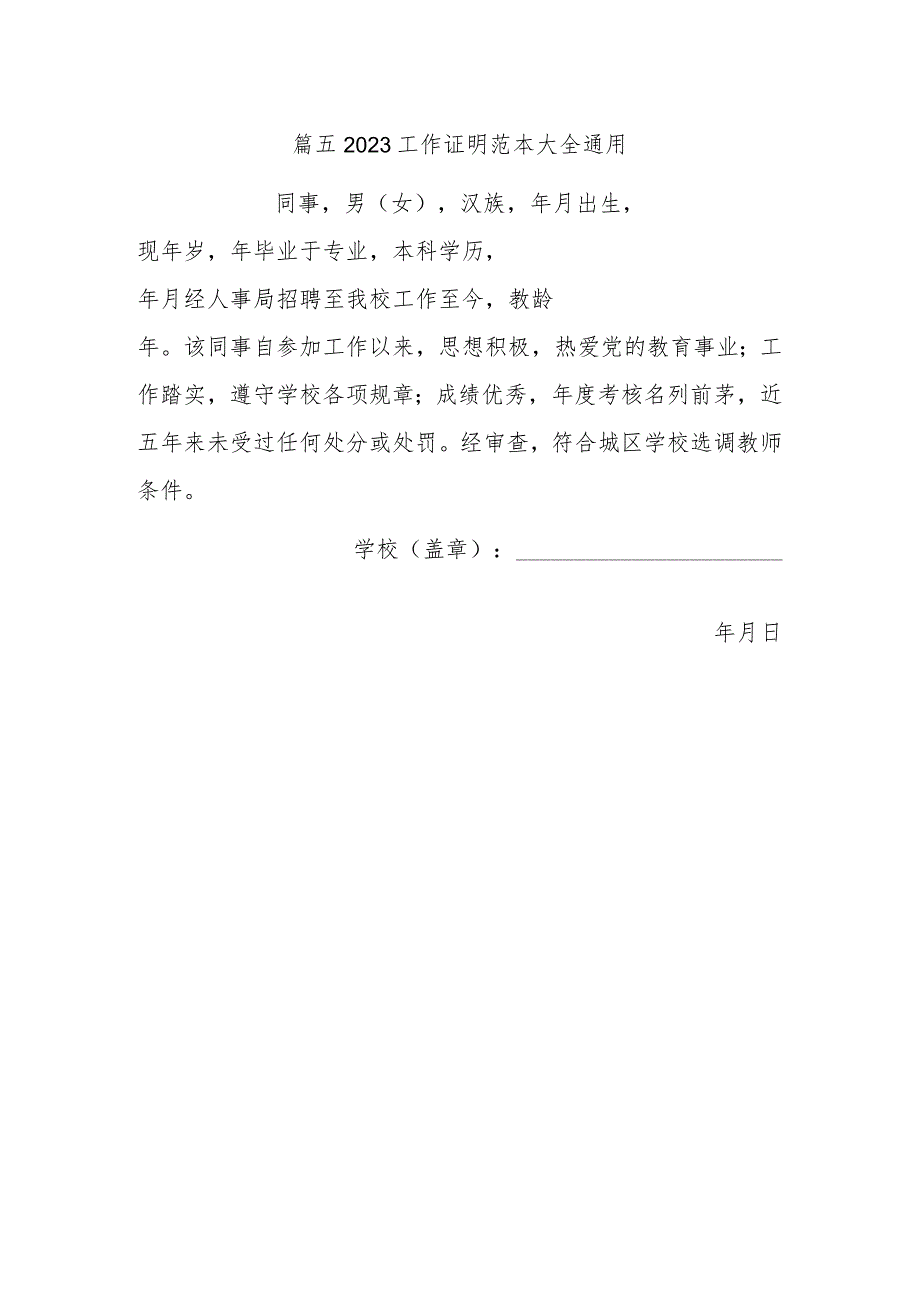 篇五 2023 工作证明范本大全通用
同事，男（女），汉族，年月出生，
现年岁，年毕业于专业，本科学历，
年月经人事局招聘至我校工作至今，教龄
年。该同事自参加工作以来，思想积极，热爱党的教育事业；工
作踏实，遵守学校各项规章；成绩优秀，年度考核名列前茅，近
五年来未受过任何处分或处罚。经审查，符合城区学校选调教师
条件。
学校（盖章）：______________________
年月日